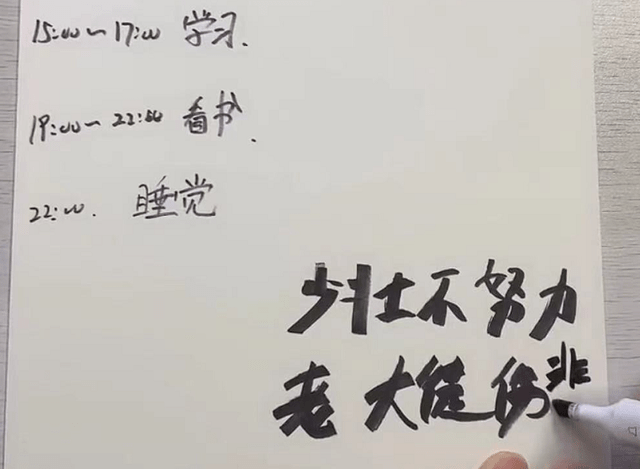 15:00~17:00 学习.
19:00~22:00 看书.
22:00. 睡觉
少壮不努力
老大徒伤悲